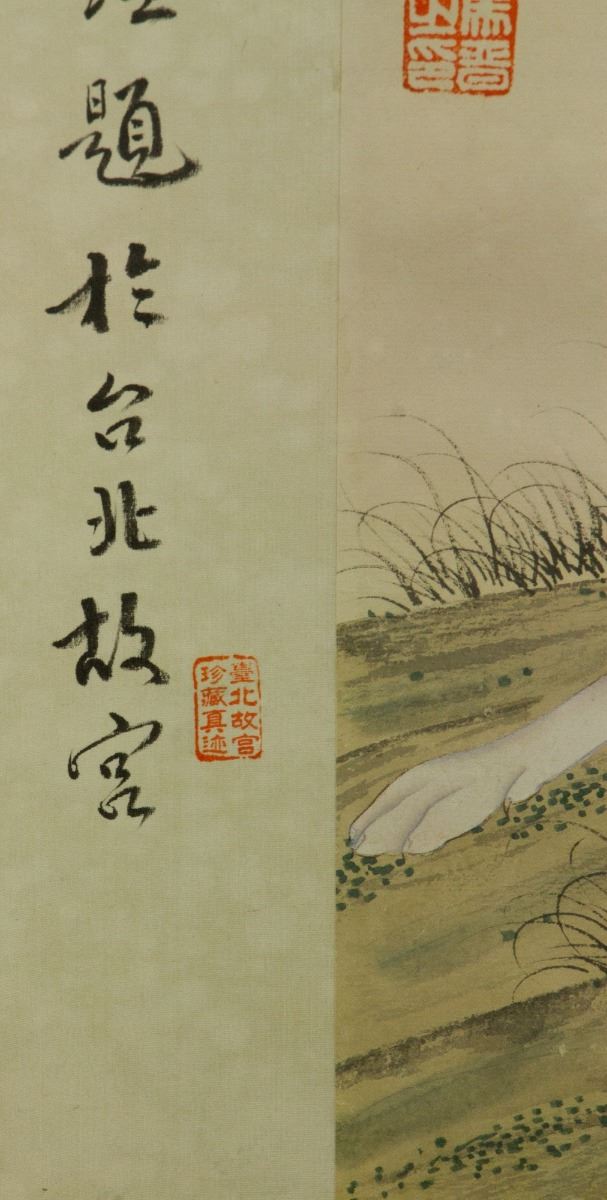 題於台北故宮
臺北故宮
珍藏真迹